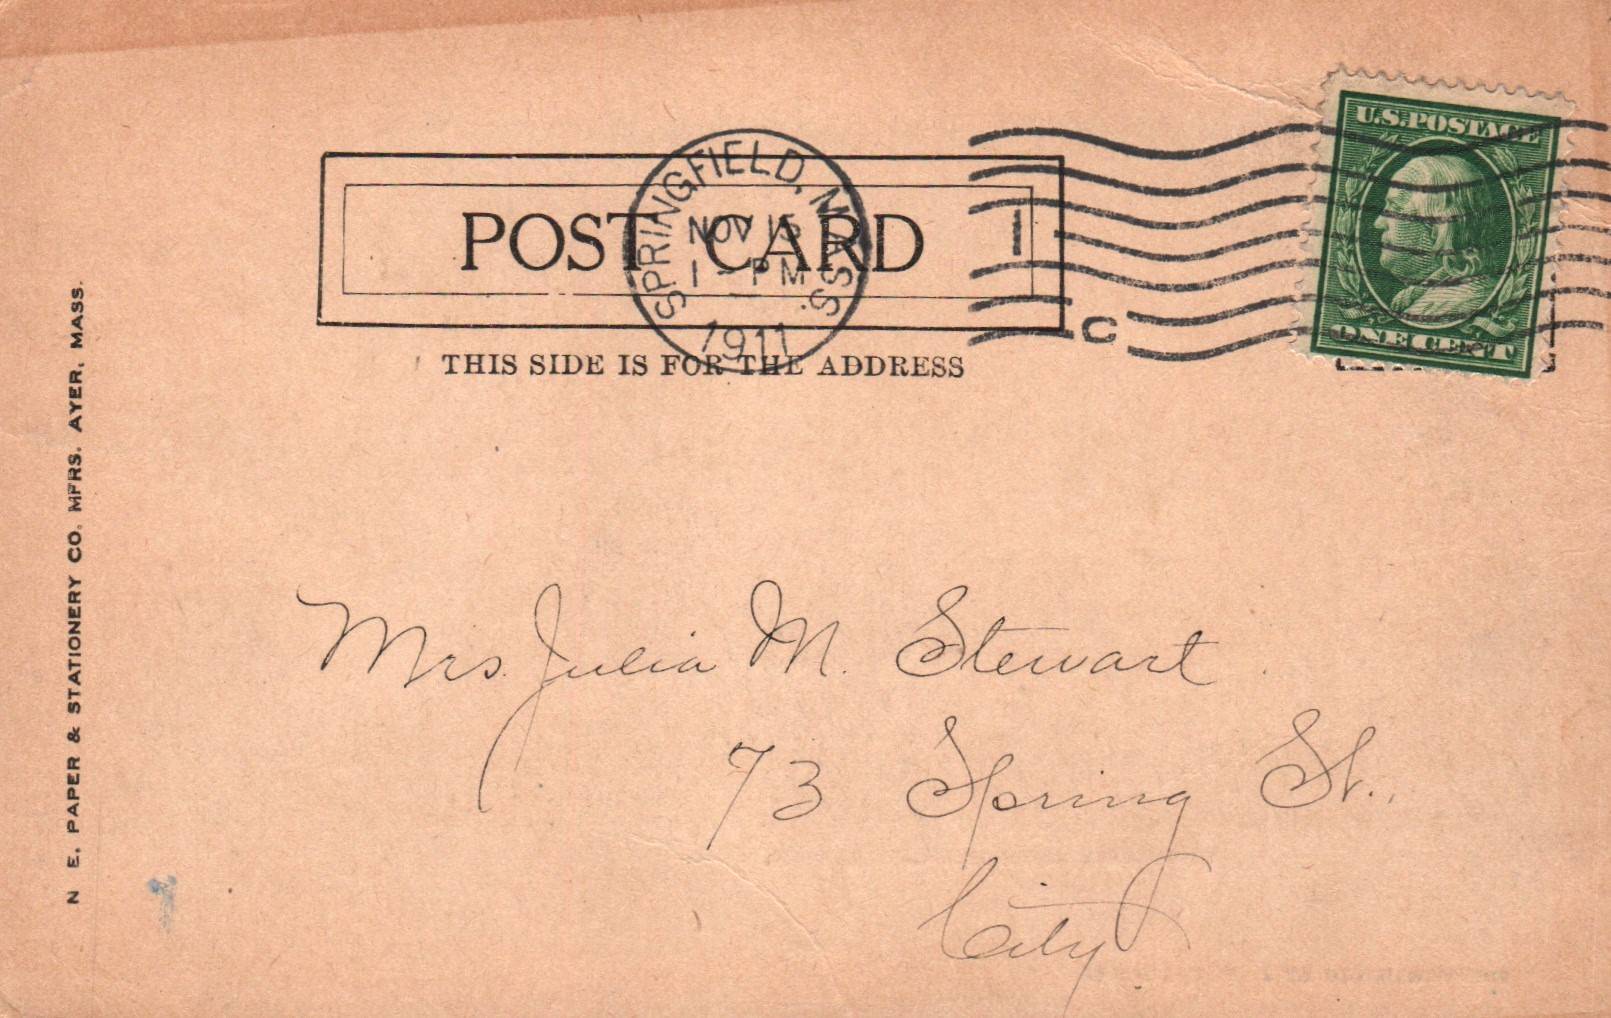 U.S.POSTAGE
SPRINGFIELD, MASS.
NOV 15
1 - PM
1911
1
C
POST CARD
ONE CENT
THIS SIDE IS FOR THE ADDRESS
N E. PAPER & STATIONERY CO. MFRS. AYER, MASS.
Mrs. Julia M. Stewart
73 Spring St.,
City